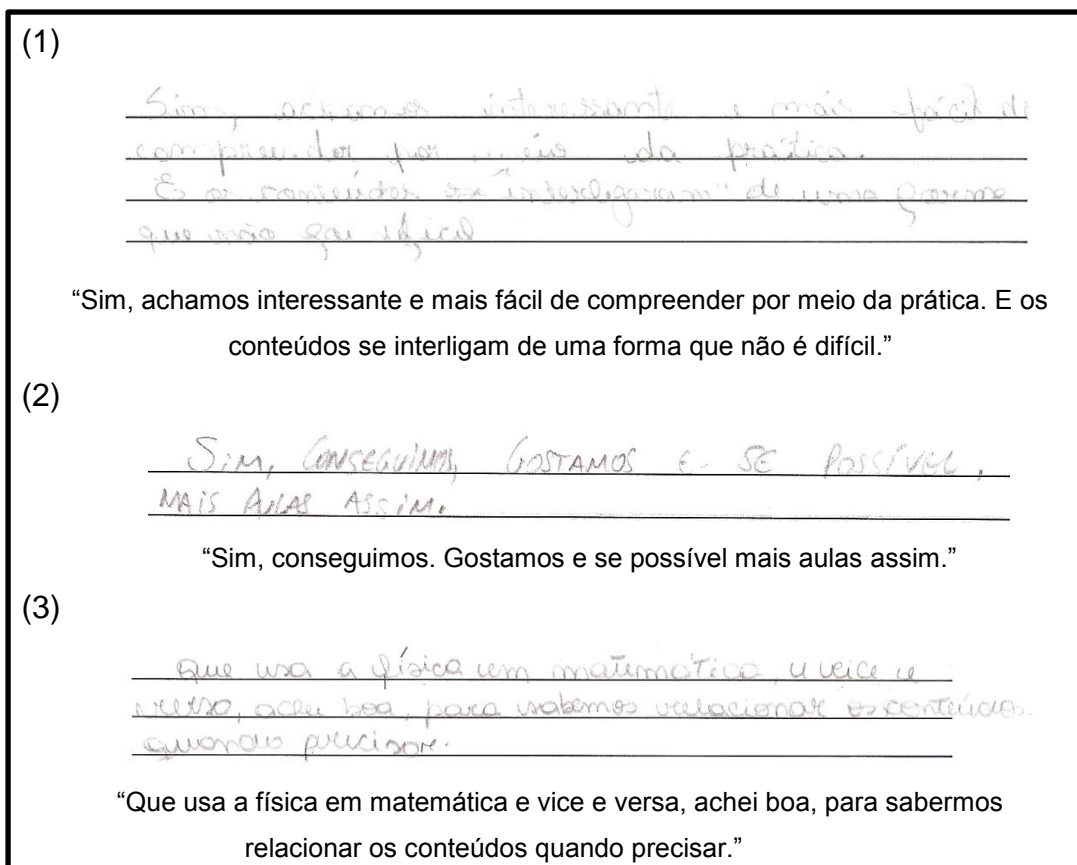 (1)
Sim, achamos interessante e mais fácil de
compreender por meio da prática.
E os conteúdos se "interligaram" de uma forma
que não foi difícil
“Sim, achamos interessante e mais fácil de compreender por meio da prática. E os
conteúdos se interligam de uma forma que não é difícil.”
(2)
SIM, CONSEGUIMOS, GOSTAMOS E SE POSSÍVEL,
MAIS AULAS ASSIM.
“Sim, conseguimos. Gostamos e se possível mais aulas assim.”
(3)
que usa a física em matemática, e veice e
verso, achei boa, para sabemos relacionar os conteúdos
quando precisar.
“Que usa a física em matemática e vice e versa, achei boa, para sabermos
relacionar os conteúdos quando precisar.”